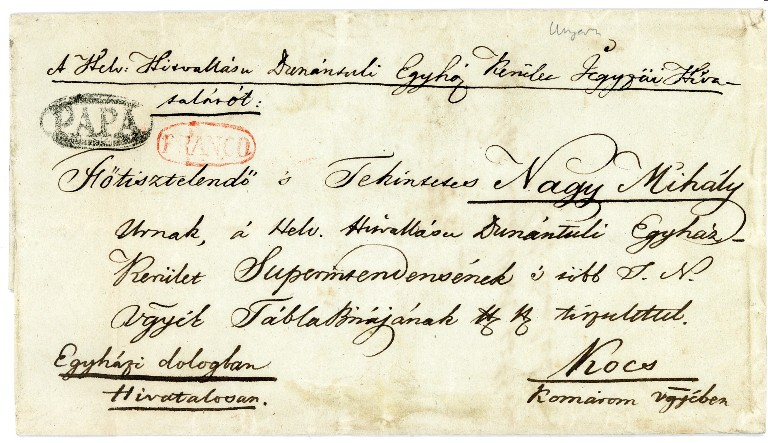 Ungarn
A Helv: Hitvallásu Dunántuli Egyház Kerület Jegyzői Hiva-
talárót:
PÁPA
FRANCO
Főtisztelendő s Tekintetes Nagy Mihály
Urnak, á Helv. Hitvallásu Dunántuli Egyház-
Kerület Superintendensének s több T. N.
Vgyék TáblaBirájának tisztelettel.
Egyházi dologban
Hivatalosan.
Kocs
Komárom vgyében